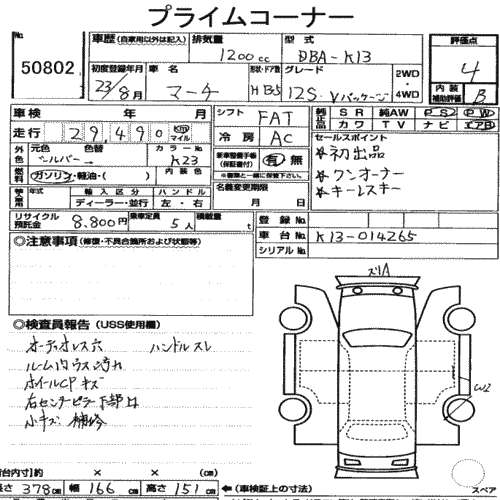 プライムコーナー
No.
50802
車歴 (自家用以外は記入) 排気量 型式
1200cc DBA-K13
評価点
4
初度登録年月 車名 形状・ドア数 グレード
23/8月 マーチ HB5 12S Vパッケージ
2WD
4WD
内装
補助評価
B
車検 年 月
シフト FAT
純正品 SR 純AW PS PW
カワ TV ナビ エアB
走行 29490 km マイル
冷房 AC
セールスポイント
外色 元色 色替 カラーNo.
シルバー K23
新車整備手帳
(保証書付)
有・無
※書類と一緒に保管下さい
*初出品
*ワンオーナー
*キーレスキー
燃料 ガソリン・軽油・( )
名義変更期限
月 日
輸入車 年式 輸入区分 ハンドル
ディーラー・並行 左・右
リサイクル預託金 8.800円 乗車定員 5人 積載量 t
登録No.
車台No. K13-014265
シリアルNo.
◎注意事項 (修復・不具合箇所および状態等)
ズリA
◎検査員報告 (USS使用欄)
オーディオレス穴 ハンドルスレ
ルーム内ウス汚れ
ホイールCPキズ
右センターピラー下部凹
小キズ 補修
W2
荷台内寸)約 × × (cm)
長さ 378cm 幅 166cm 高さ 151cm
(車検証上の寸法)
スペア